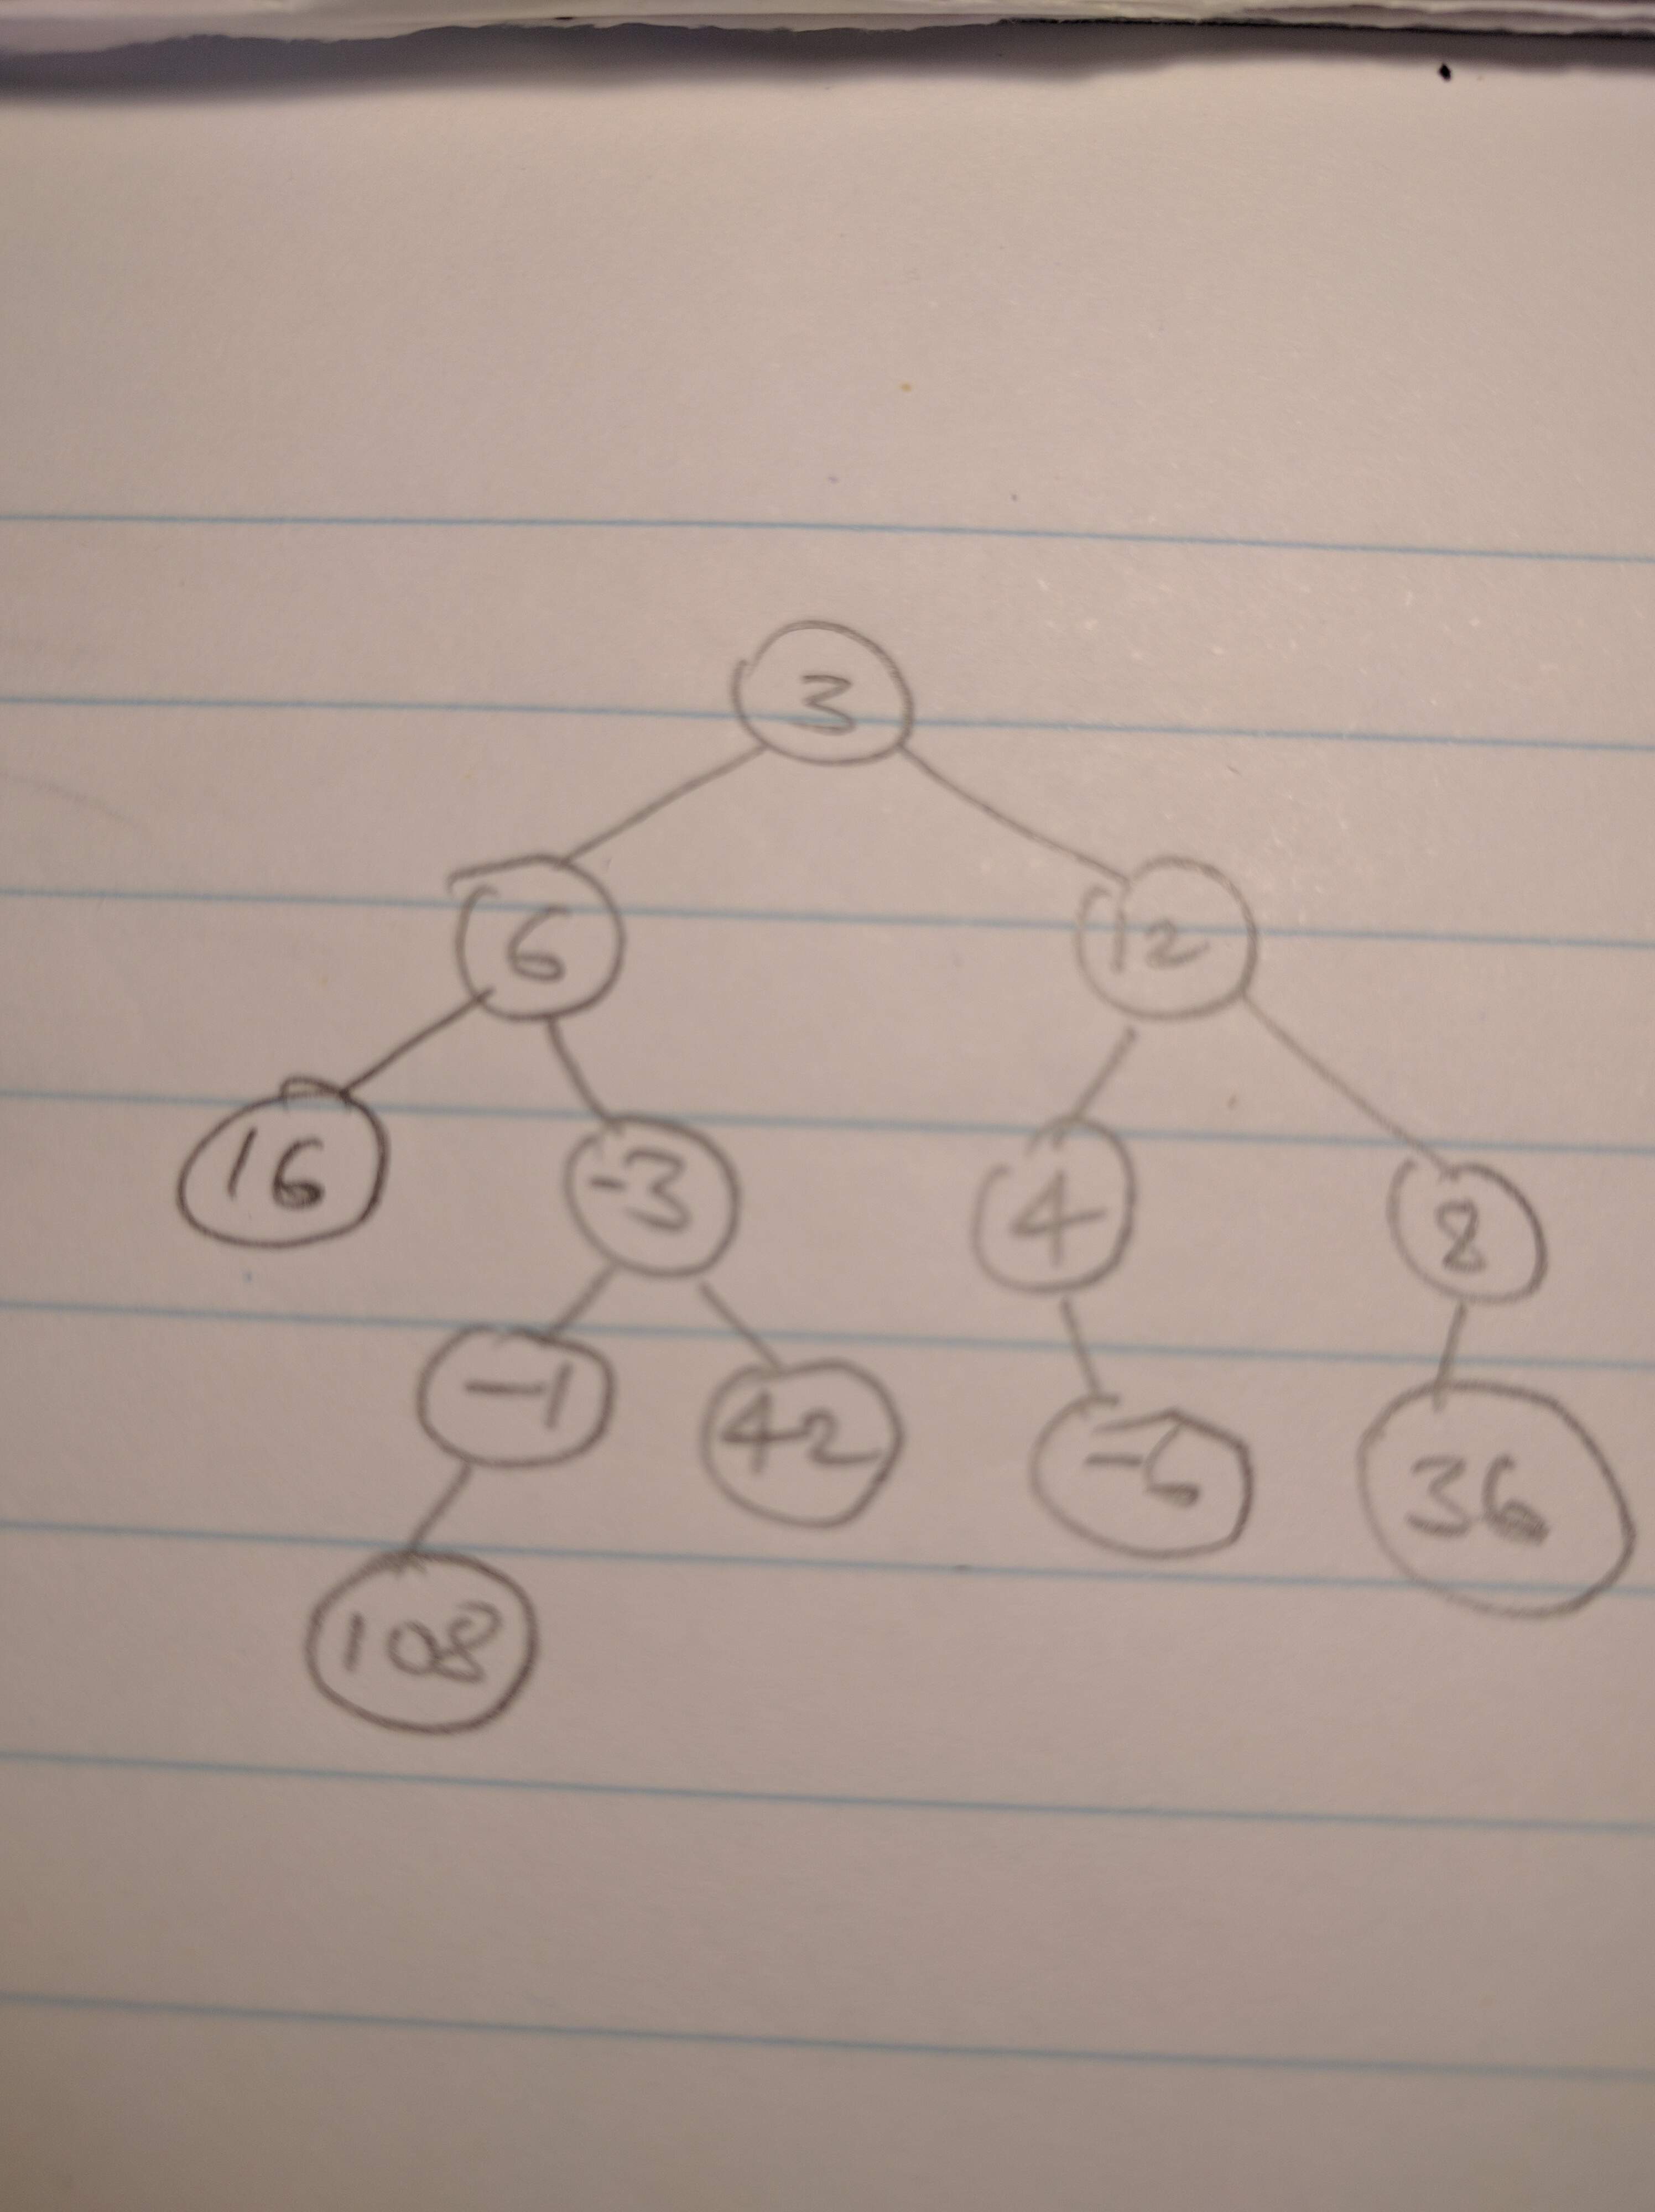 3
6 12
16 -3 4 8
-1 42 -6 36
108